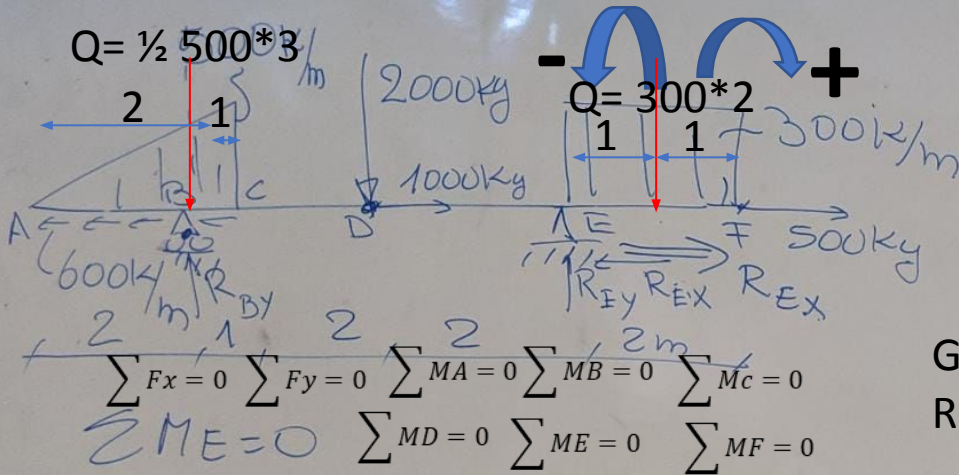 Q= ½ 500*3
500k/m
2
1
2000kg
- +
Q= 300*2
1
1
300k/m
1000kg
A
B
C
D
E
F
500kg
600k/m
R_BY
R_EY
R_EX
R_EX
2 1 2 2 2m
∑Fx = 0 ∑Fy = 0 ∑MA = 0 ∑MB = 0 ∑Mc = 0
G
ΣM_E=0 ∑MD = 0 ∑ME = 0 ∑MF = 0
R